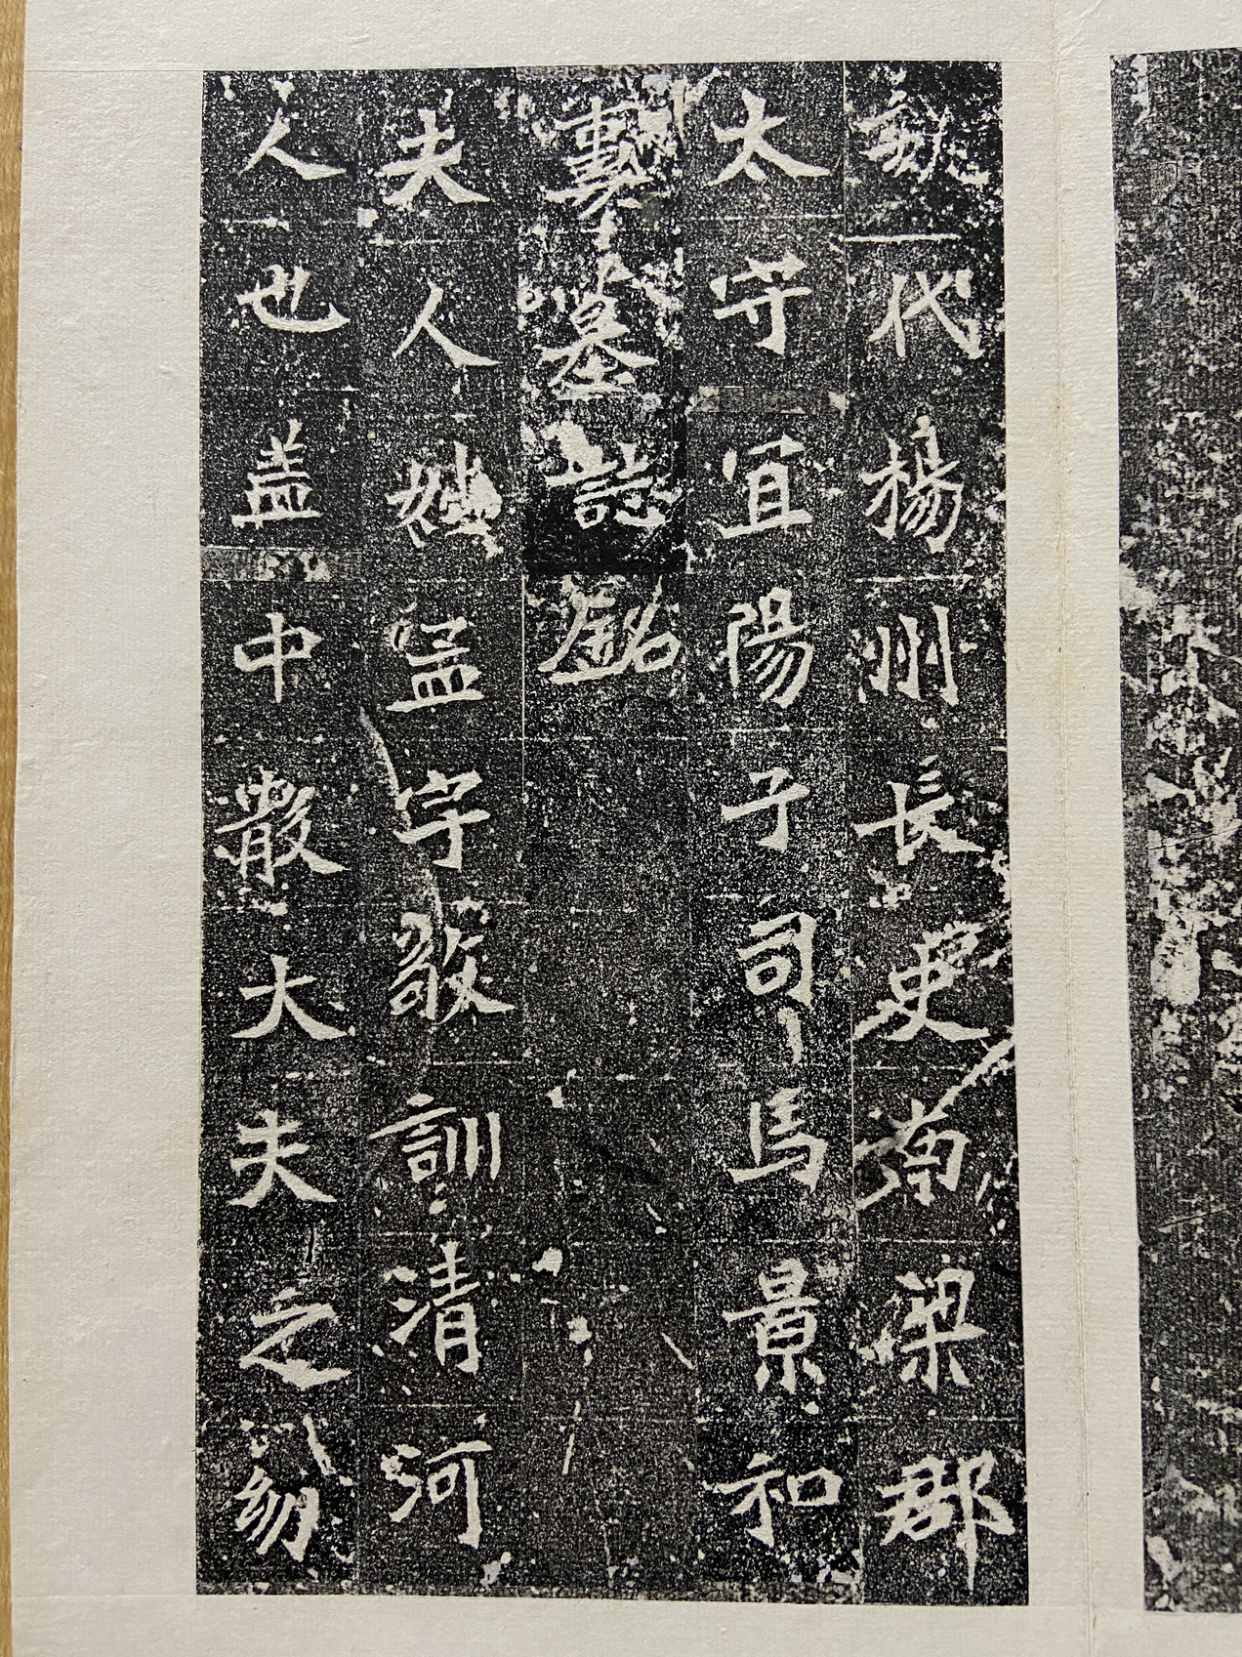 魏代楊州長史南梁郡
太守宜陽子司馬景和
妻墓誌銘
夫人姓孟字敬訓清河
人也盖中散大夫之幼